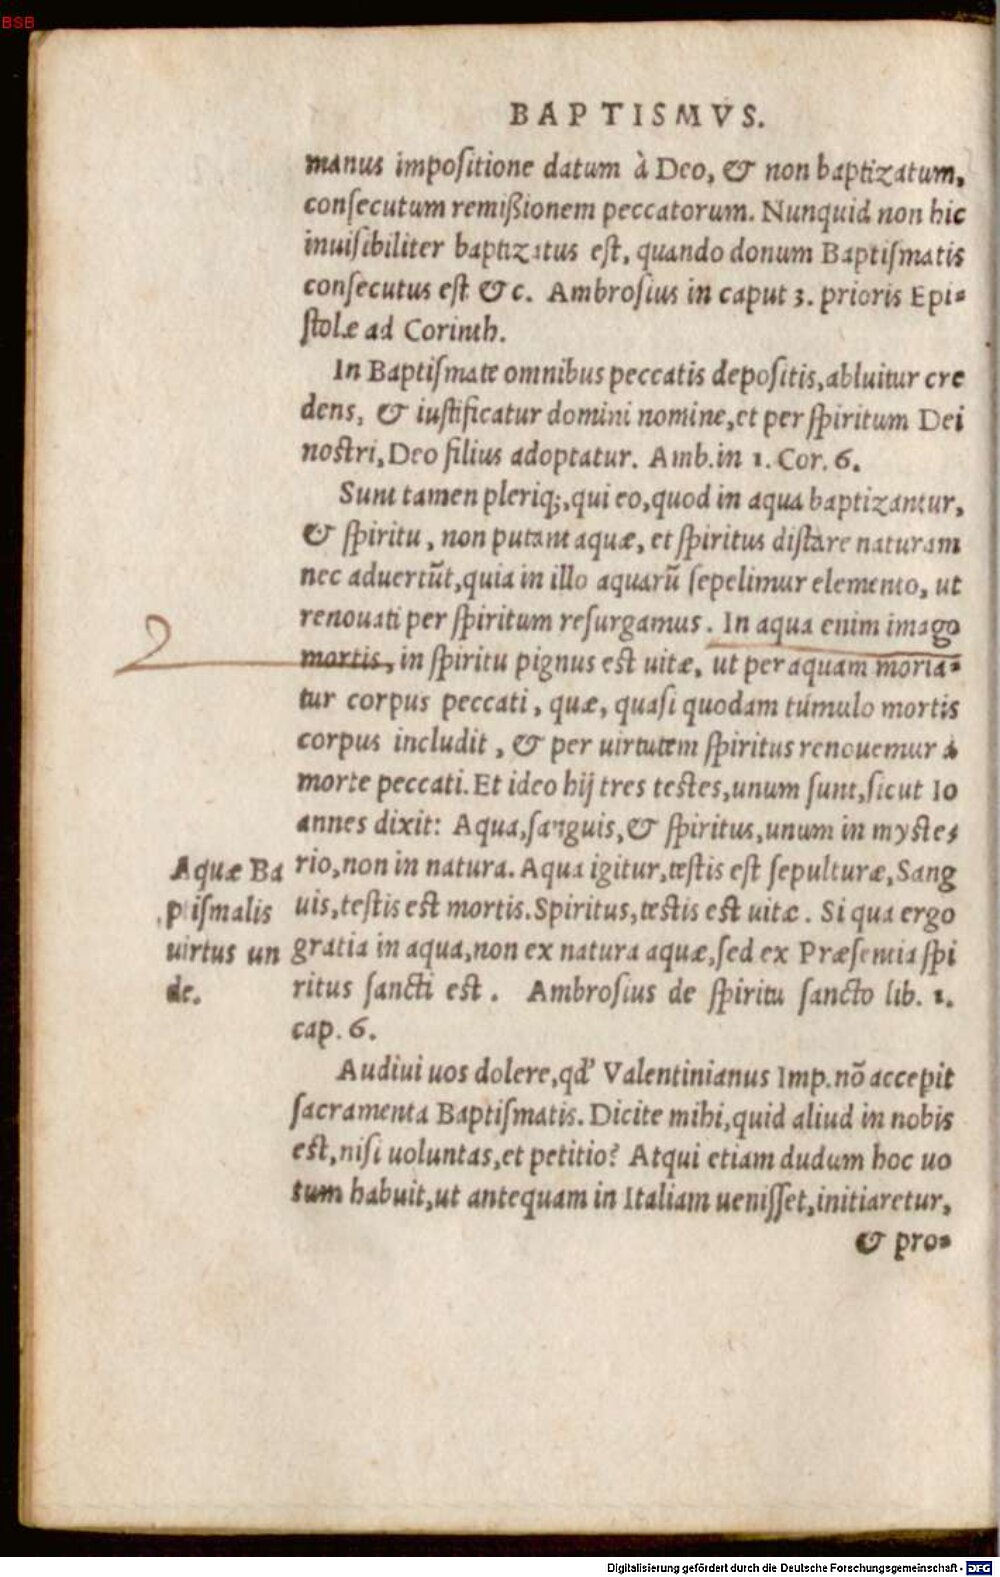 BSB
BAPTISMVS.
manus impositione datum à Deo, & non baptizatum,
consecutum remißionem peccatorum. Nunquid non hic
inuisibiliter baptizatus est, quando donum Baptismatis
consecutus est &c. Ambrosius in caput 3. prioris Epi=
stolæ ad Corinth.
In Baptismate omnibus peccatis depositis, abluitur cre
dens, & iustificatur domini nomine, et per spiritum Dei
nostri, Deo filius adoptatur. Amb. in 1. Cor. 6.
Sunt tamen pleriq;, qui eo, quod in aqua baptizantur,
& spiritu, non putant aquæ, et spiritus distare naturam
nec aduertũt, quia in illo aquarũ sepelimur elemento, ut
renouati per spiritum resurgamus. In aqua enim imago
mortis, in spiritu pignus est uitæ, ut per aquam moria=
tur corpus peccati, quæ, quasi quodam túmulo mortis
corpus includit, & per uirtutem spiritus renouemur à
morte peccati. Et ideo hij tres testes, unum sunt, sicut Io
annes dixit: Aqua, sanguis, & spiritus, unum in myste=
rio, non in natura. Aqua igitur, testis est sepulturæ, Sang
uis, testis est mortis. Spiritus, testis est uitæ. Si qua ergo
gratia in aqua, non ex natura aquæ, sed ex Præsentia spi
ritus sancti est. Ambrosius de spiritu sancto lib. 1.
cap. 6.
Aquæ Ba
ptismalis
uirtus un
de.
Audiui uos dolere, qd' Valentinianus Imp. nõ accepit
sacramenta Baptismatis. Dicite mihi, quid aliud in nobis
est, nisi uoluntas, et petitio? Atqui etiam dudum hoc uo
tum habuit, ut antequam in Italiam uenisset, initiaretur,
& pro=
Digitalisierung gefördert durch die Deutsche Forschungsgemeinschaft - DFG